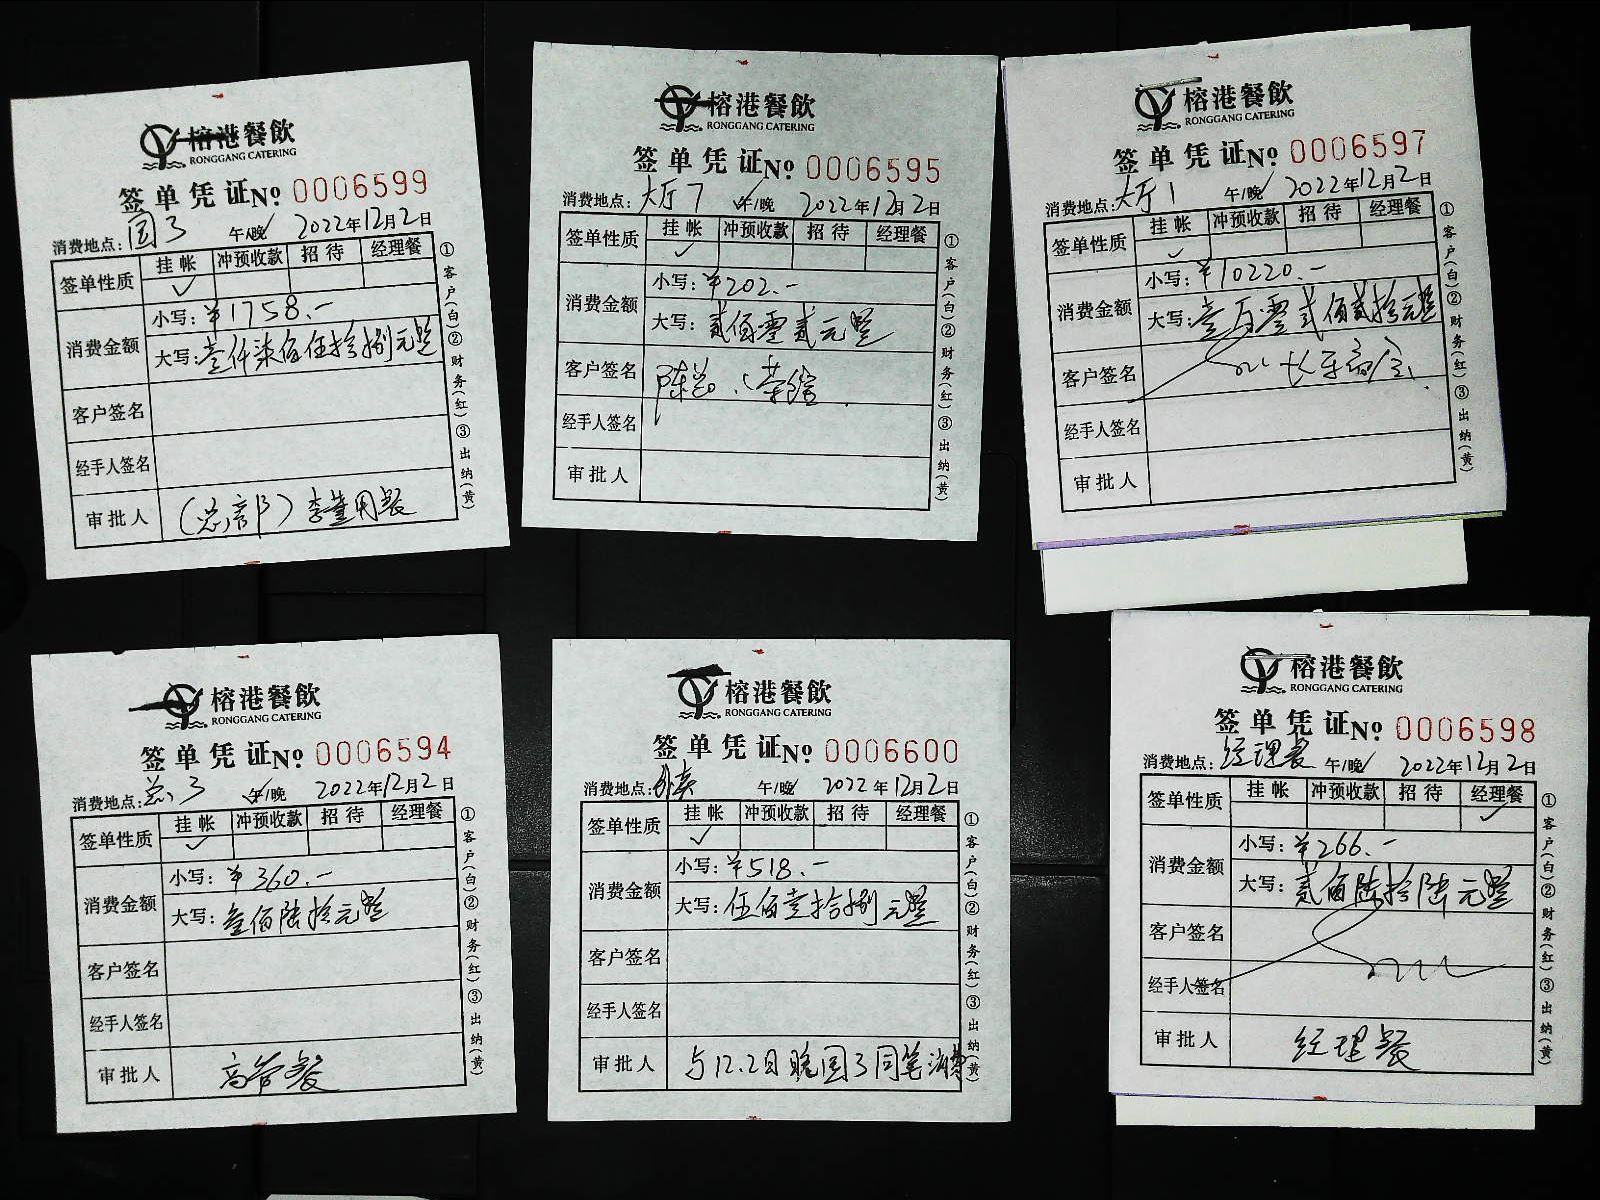 榕港餐飲
RONGGANG CATERING
签单凭证 № 0006599
消费地点: 国3 午/晚✓ 2022年12月2日
签单性质 挂帐 冲预收款 招待 经理餐
✓
消费金额 小写: ¥1758.-
大写: 壹仟柒佰伍拾捌元整
客户签名
经手人签名
审批人 (总部) 李董用餐
①客户(白)②财务(红)③出纳(黄)
榕港餐飲
RONGGANG CATERING
签单凭证 № 0006595
消费地点: 大厅7 午✓/晚 2022年12月2日
签单性质 挂帐 冲预收款 招待 经理餐
✓
消费金额 小写: ¥202.-
大写: 贰佰零贰元整
客户签名 陈总
经手人签名
审批人
①客户(白)②财务(红)③出纳(黄)
榕港餐飲
RONGGANG CATERING
签单凭证 № 0006597
消费地点: 大厅1 午/晚✓ 2022年12月2日
签单性质 挂帐 冲预收款 招待 经理餐
✓
消费金额 小写: ¥10220.-
大写: 壹万零贰佰贰拾元整
客户签名
经手人签名
审批人
①客户(白)②财务(红)③出纳(黄)
榕港餐飲
RONGGANG CATERING
签单凭证 № 0006594
消费地点: 总3 午✓/晚 2022年12月2日
签单性质 挂帐 冲预收款 招待 经理餐
✓
消费金额 小写: ¥360.-
大写: 叁佰陆拾元整
客户签名
经手人签名
审批人 高管餐
①客户(白)②财务(红)③出纳(黄)
榕港餐飲
RONGGANG CATERING
签单凭证 № 0006600
消费地点: 外卖 午/晚✓ 2022年12月2日
签单性质 挂帐 冲预收款 招待 经理餐
✓
消费金额 小写: ¥518.-
大写: 伍佰壹拾捌元整
客户签名
经手人签名
审批人 与12.2日晚国3同笔消费
①客户(白)②财务(红)③出纳(黄)
榕港餐飲
RONGGANG CATERING
签单凭证 № 0006598
消费地点: 经理餐 午/晚✓ 2022年12月2日
签单性质 挂帐 冲预收款 招待 经理餐
✓
消费金额 小写: ¥266.-
大写: 贰佰陆拾陆元整
客户签名
经手人签名
审批人 经理餐
①客户(白)②财务(红)③出纳(黄)